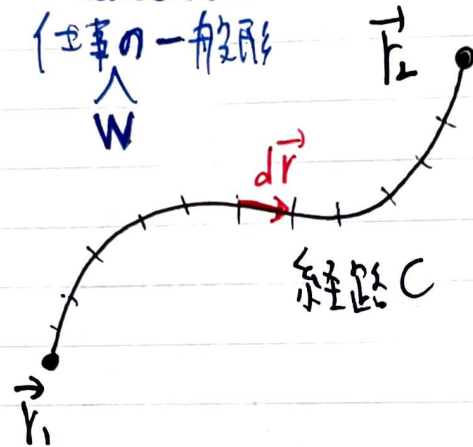 仕事の一般形
W
r⃗₂
dr⃗
経路C
r⃗₁